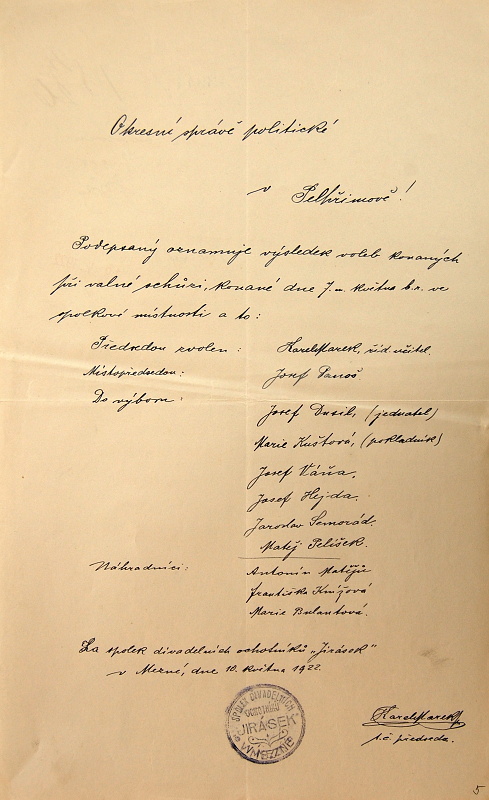 Okresní správě politické
v Pelhřimově!
Podepsaný oznamuje výsledek voleb konaných
při valné schůzi, konané dne 7.
května b.r. ve
spolkové místnosti a to:
Předsedou zvolen: Karel Marek, říd. učitel.
Místopředsedou: Josef Panoš.
Do výboru: Josef Dusil, (jednatel)
Marie Kuštová, (pokladník)
Josef Váňa,
Josef Hejda,
Jaroslav Semorád.
Matěj Pelíšek.
Náhradníci: Antonín Matějíc
Františka Knížová
Marie Bulantová.
Za spolek divadelních ochotníků „Jirásek"
v Mezné, dne 10. května 1922.
SPOLEK DIVADELNÍCH
OCHOTNÍKŮ
"JIRÁSEK"
V MEZNÉ
Karel Marek
t.č. předseda.
5